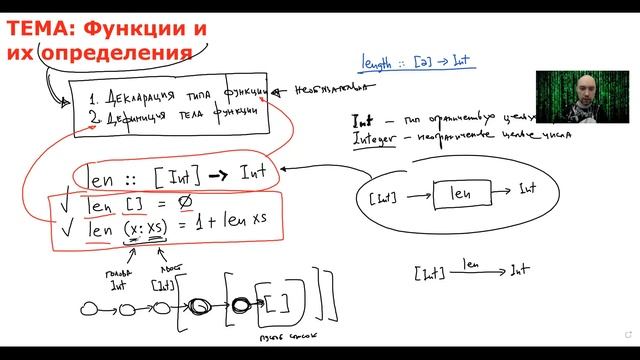 ТЕМА: Функции и
их определения
length :: [a] → Int
1. Декларация типа функции ← необязательна
2. Дефиниция тела функции
Int - тип ограниченных целых
Integer - неограниченные целые числа
len :: [Int] → Int
len [] = 0
len (x:xs) = 1 + len xs
[Int] → len → Int
голова хвост
Int [Int]
[ ]
пустой список
[Int] len → Int